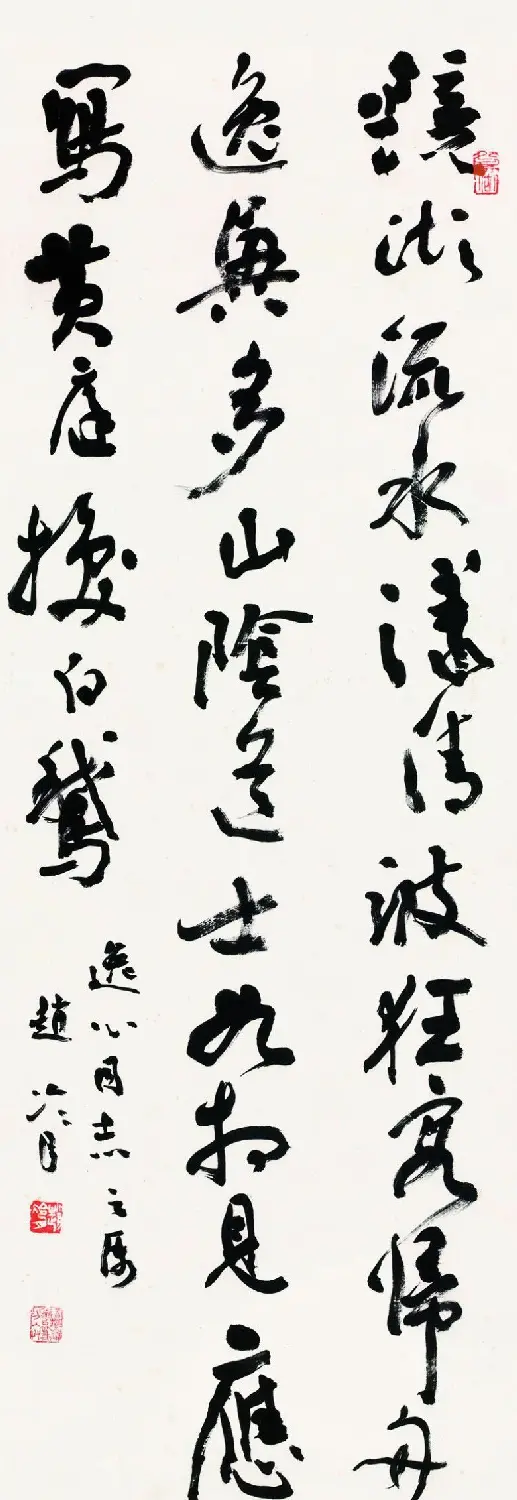 鏡湖流水漾清波狂客歸舟
逸興多山陰道士如相見應
寫黃庭換白鵝
逸心同志之屬
趙冷月